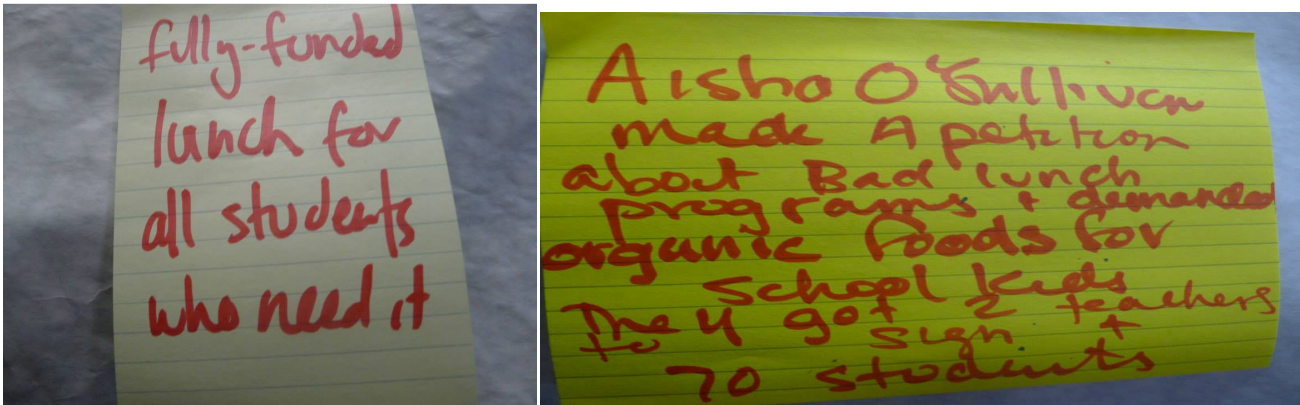 fully-funded
lunch for
all students
who need it
Aisha O'Sullivan
made A petition
about Bad lunch
programs + demanded
organic foods for
School Kids
They got 2 teachers
to sign +
70 students